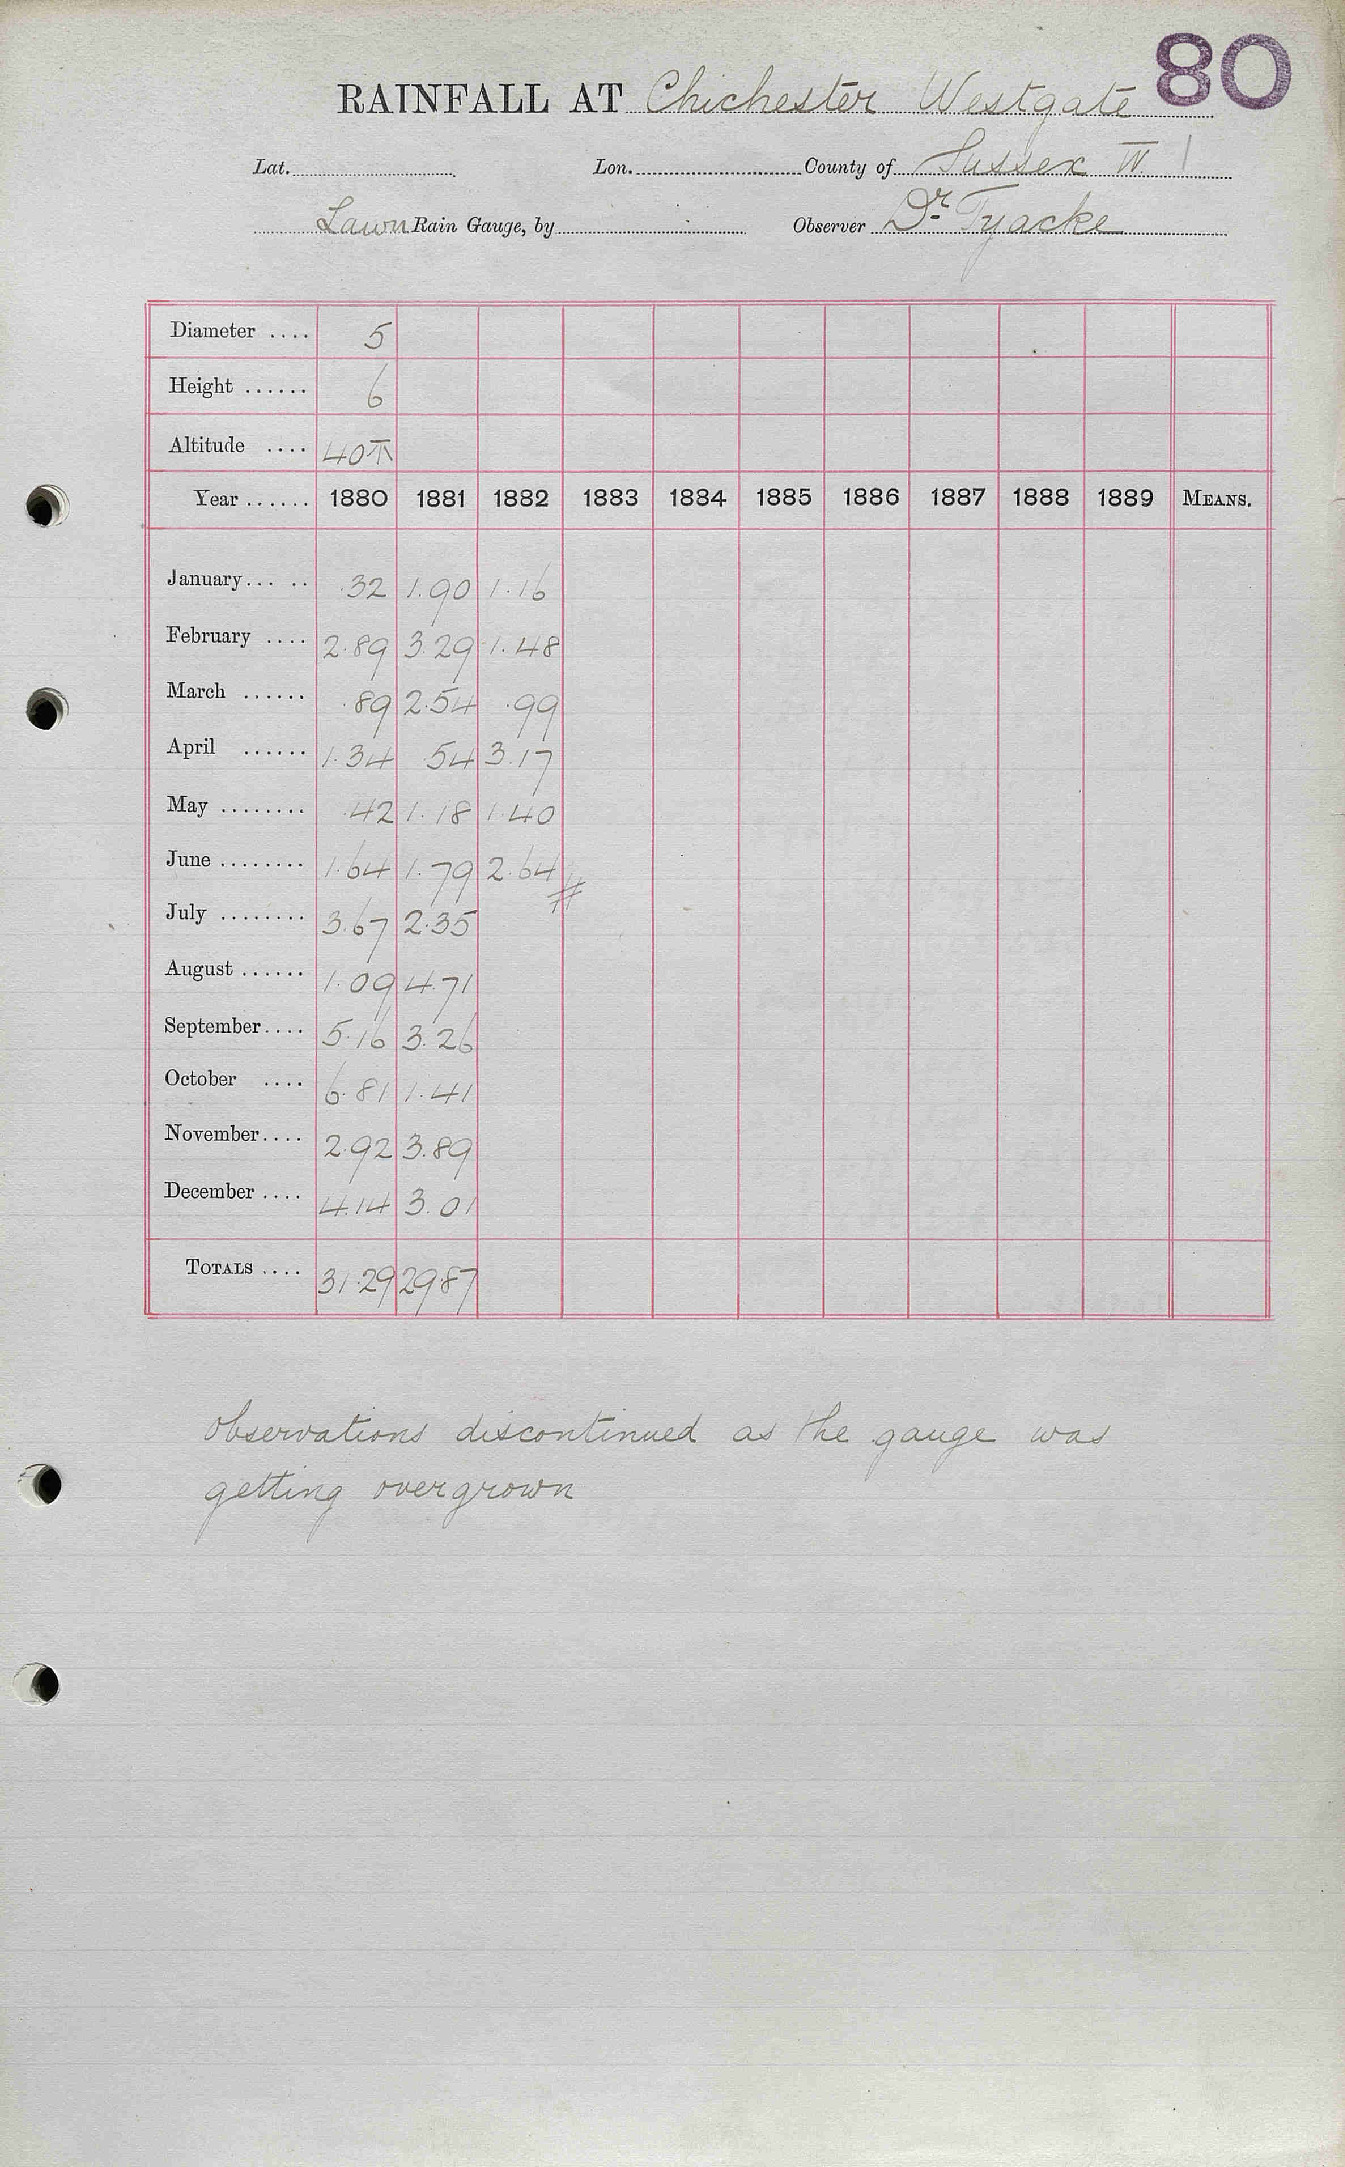 80
RAINFALL AT Chichester Westgate
Lat. Lon. County of Sussex W. 1
Lawn Rain Gauge, by Observer Dr Tyacke
Diameter .... 5
Height ...... 6
Altitude .... 40
Year ...... 1880 1881 1882 1883 1884 1885 1886 1887 1888 1889 MEANS.
January... .. .32 1.90 1.16
February .... 2.89 3.29 1.48
March ...... .89 2.54 .99
April ...... 1.34 .54 3.17
May ........ .42 1.18 1.40
June ........ 1.64 1.79 2.64 #
July ........ 3.67 2.35
August ...... 1.09 4.71
September.... 5.16 3.26
October .... 6.81 1.41
November.... 2.92 3.89
December .... 4.14 3.01
TOTALS .... 31.29 29.87
Observations discontinued as the gauge was
getting overgrown